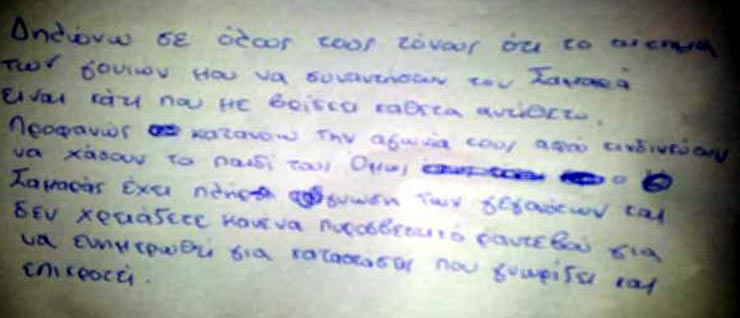 Δηλώνω σε όλους τους τόνους ότι το αίτημα
των γονιών μου να συναντήσουν τον Σαμαρά
είναι κάτι που με βρίσκει κάθετα αντίθετο.
Προφανώς κατανοώ την αγωνία τους αφού κινδινεύουν
να χάσουν το παιδί τους Όμως ο
Σαμαράς έχει πλήρη γνώση των γεγονότων και
δεν χρειάζετε κανένα πυροσβεστικό ραντεβού για
να ενημερωθεί για καταστάσεις που γνωρίζει και
επικροτεί.